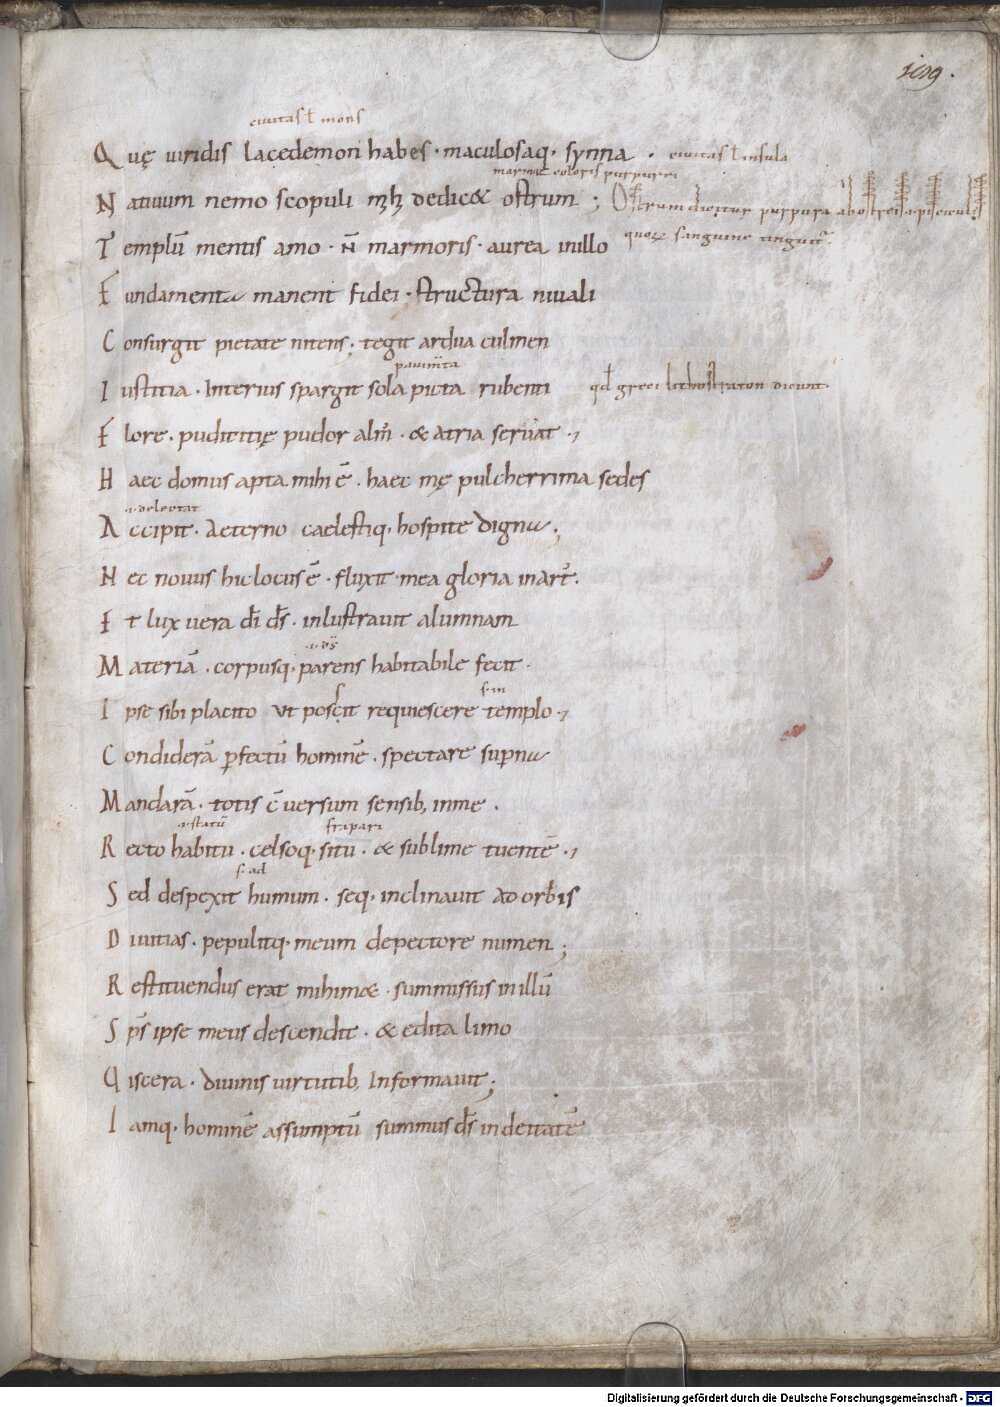 109.
ciuitas ł mons
Q uę uiridis lacedemon habes · maculosaq· synna · ciuitas ł insula
marmor coloris purpurei
N atiuum nemo scopuli mҺ dedic& ostrum ; Ostrum dicitur purpura ab ostreis
T emplū mentis amo · n̄ marmoris · aurea inillo quoꝝ sanguine tinguit᷑
F undamenta manent fidei · structura niuali
C onsurgit pietate nitens ; tegit ardua culmen
pauimta
I ustitia · Interius spargit sola picta rubenti qđ greci lithostraton dicunt
F lore · pudititię pudor alm᷒ · & atria seruat ·,
H aec domus apta mihi ē · haec mę pulcherrima sedes
·i· delectat
A ccipit · Aeterno caelestiq· hospite digna ;
N ec nouus hic locus ē · fluxit mea gloria in
E t lux uera dī ds̄ · inlustrauit alumnam
·i· ds̄
M ateriā · corpusq· parens habitabile fecit ·
s s· in
I pse sibi placito ut poscit requiescere templo ·,
C ondiderā ꝑfectū hominē · spectare supna
M andarā · totis c̄ uersum sensib, inme ·
·i· statū
R ecto habitu · celsoq· situ · & sublime tuentē ·,
s· ad
S ed despexit humum · seq· inclinauit ad orbis
D iuitias · pepulitq· meum depectore numen ;
R estituendus erat mihimæ · summissus inillū
S p̄s ipse meus descendit · & edita limo
V iscera · diuinis uirtutib, Informauit ;
I amq· hominē assumptū summus ds̄ indeitatē
Digitalisierung gefördert durch die Deutsche Forschungsgemeinschaft - DFG